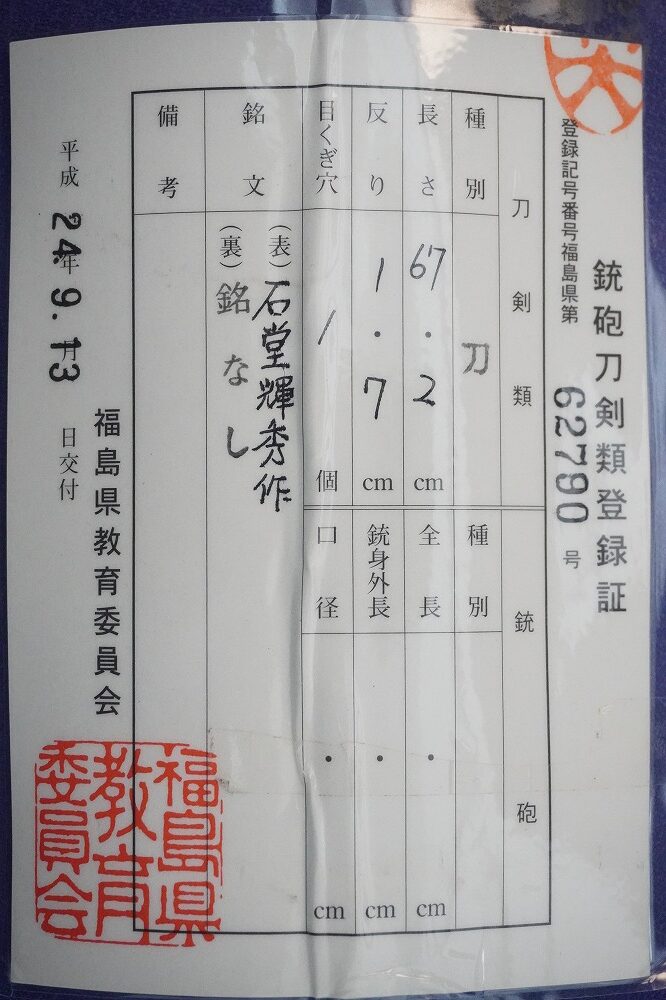 銃砲刀剣類登録証
登録記号番号福島県第 62790 号
刀剣類
種別 刀
長さ 67.2 cm
反り 1.7 cm
目くぎ穴 1 個
銘文 (表) 石堂輝秀作
(裏) 銘なし
備考
銃砲
種別
全長 . cm
銃身外長 . cm
口径 . cm
平成 24年 9.月13 日交付
福島県教育委員会
福島県
教育
委員会